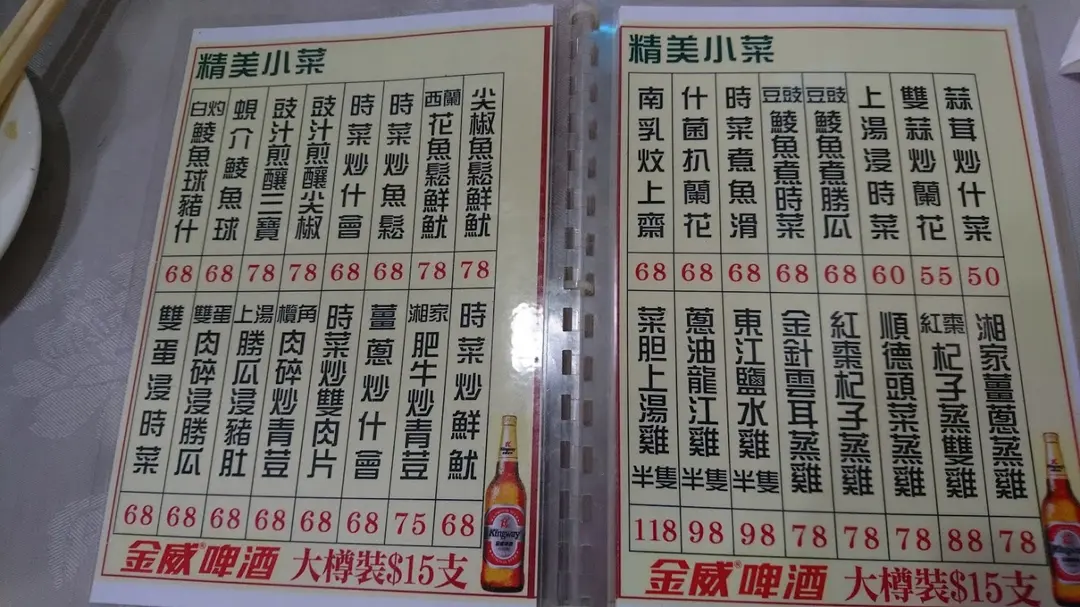 精美小菜
尖椒魚鬆鮮魷 78
西蘭花魚鬆鮮魷 78
時菜炒魚鬆 68
時菜炒什會 68
豉汁煎釀尖椒 78
豉汁煎釀三寶 78
蜆介鯪魚球 68
白灼鯪魚球豬什 68
時菜炒鮮魷 68
湘家肥牛炒青荳 75
薑蔥炒什會 68
時菜炒雙肉片 68
欖角肉碎炒青荳 68
上湯勝瓜浸豬肚 68
雙蛋肉碎浸勝瓜 68
雙蛋浸時菜 68
金威®啤酒 大樽裝$15支
Kingway
精美小菜
蒜茸炒什菜 50
雙蒜炒蘭花 55
上湯浸時菜 60
豆豉鯪魚煮勝瓜 68
豆豉鯪魚煮時菜 68
時菜煮魚滑 68
什菌扒蘭花 68
南乳炆上齋 68
湘家薑蔥蒸雞 78
紅棗杞子蒸雙雞 88
順德頭菜蒸雞 78
紅棗杞子蒸雞 78
金針雲耳蒸雞 78
東江鹽水雞半隻 98
蔥油龍江雞半隻 98
菜胆上湯雞半隻 118
金威®啤酒 大樽裝$15支